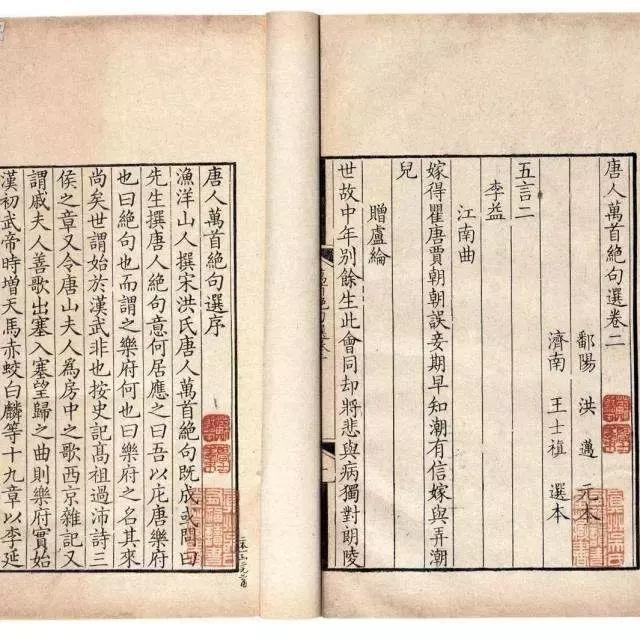 唐人萬首絶句選卷二
鄱陽 洪邁 元本
濟南 王士禛 選本
五言二
李益
江南曲
嫁得瞿唐賈朝朝誤妾期早知潮有信嫁與弄潮
兒
贈盧綸
世故中年别餘生此會同却將悲與病獨對朗陵
唐人萬首絶句選序
漁洋山人撰宋洪氏唐人萬首絶句既成或問曰
先生撰唐人絶句意何居應之曰吾以庀唐樂府
也曰絶句也而謂之樂府何也曰樂府之名其來
尚矣世謂始於漢武非也按史記髙祖過沛詩三
侯之章又令唐山夫人為房中之歌西京雜記又
謂戚夫人善歌出塞入塞望歸之曲則樂府實始
漢初武帝時増天馬赤蛟白麟等十九章以李延